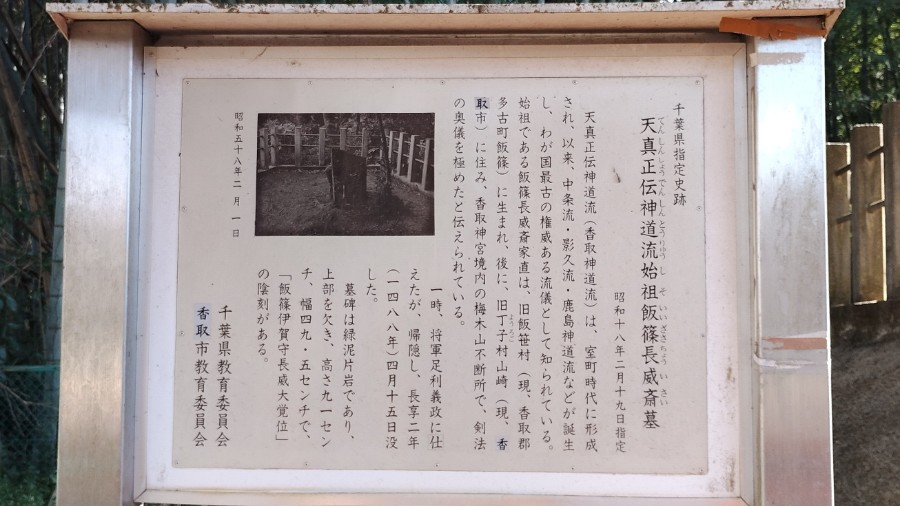 千葉県指定史跡
天真正伝神道流始祖飯篠長威斎墓
てんしんしょうでんしんとうりゅうしそいいざさちょういさい
昭和十八年二月十九日指定
天真正伝神道流（香取神道流）は、室町時代に形成
され、以来、中条流・影久流・鹿島神道流などが誕生
し、わが国最古の権威ある流儀として知られている。
始祖である飯篠長威斎家直は、旧飯笹村（現、香取郡
多古町飯篠）に生まれ、後に、旧丁子村山崎（現、香
ようろご
取市）に住み、香取神宮境内の梅木山不断所で、剣法
の奥儀を極めたと伝えられている。
一時、将軍足利義政に仕
えたが、帰隠し、長享二年
（一四八八年）四月十五日没
した。
墓碑は緑泥片岩であり、
上部を欠き、高さ九一セン
チ、幅四九・五センチで、
「飯篠伊賀守長威大覚位」
の陰刻がある。
昭和五十八年二月一日
千葉県教育委員会
香取市教育委員会